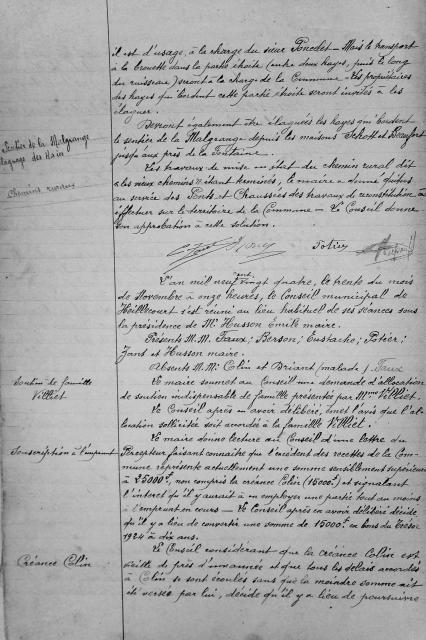 il est d'usage, à la charge du sieur Poncelet — Mais le transport
à la brouette dans la partie étroite (entre deux hayes, puis le long
du ruisseau) seront à la charge de la Commune. Les propriétaires
des hayes qui bordent cette partie étroite seront invités à les
élaguer.
Devront également être élaguées les hayes qui bordent
Sentier de la Malgrange
élagage des haies
le sentier de la Malgrange depuis les maisons Schott et
jusqu'aux près de la Fontaine.
Chemins ruraux
Les travaux de mise en état du chemin rural dit
"les vieux chemins" étant terminés, le maire a donné
au service des Ponts et Chaussées des travaux de reconstitution à
effectuer sur le territoire de la Commune — Le Conseil donne
son approbation à cette solution.
Potier
L'an mil neuf cent vingt quatre, le trente du mois
de Novembre à onze heures, le Conseil municipal de
Heillecourt s'est réuni au lieu habituel de ses séances sous
la présidence de Mr Husson Emile maire.
Présents M.M. Faux; Berson; Eustache; Potier;
Jans et Husson maire.
Absents M.M. Colin et Briant (malade). Faux
Soutien de famille
Villiet
Le maire soumet au Conseil une demande d'allocation
de soutien indispensable de famille présentée par Mme Villiet.
Le Conseil après en avoir délibéré, émet l'avis que l'al-
location sollicitée soit accordée à la famille Villiet.
Souscription à l'emprunt
Le maire donne lecture au Conseil d'une lettre du
Percepteur faisant connaître que l'excédent des recettes de la Com-
mune représente actuellement une somme sensiblement supérieure
à 25000f, non compris la créance Colin (15000f) et signalant
l'intérêt qu'il y aurait à en employer une partie tout au moins
à l'emprunt en cours — Le Conseil après en avoir délibéré décide
qu'il y a lieu de convertir une somme de 15000f en bons du Trésor
1924 à dix ans.
Créance Colin
Le Conseil considérant que la créance Colin est
vieille de près d'une année et que tous les délais accordés
à Colin se sont écoulés sans que la moindre somme ait
été versée par lui, décide qu'il y a lieu de poursuivre